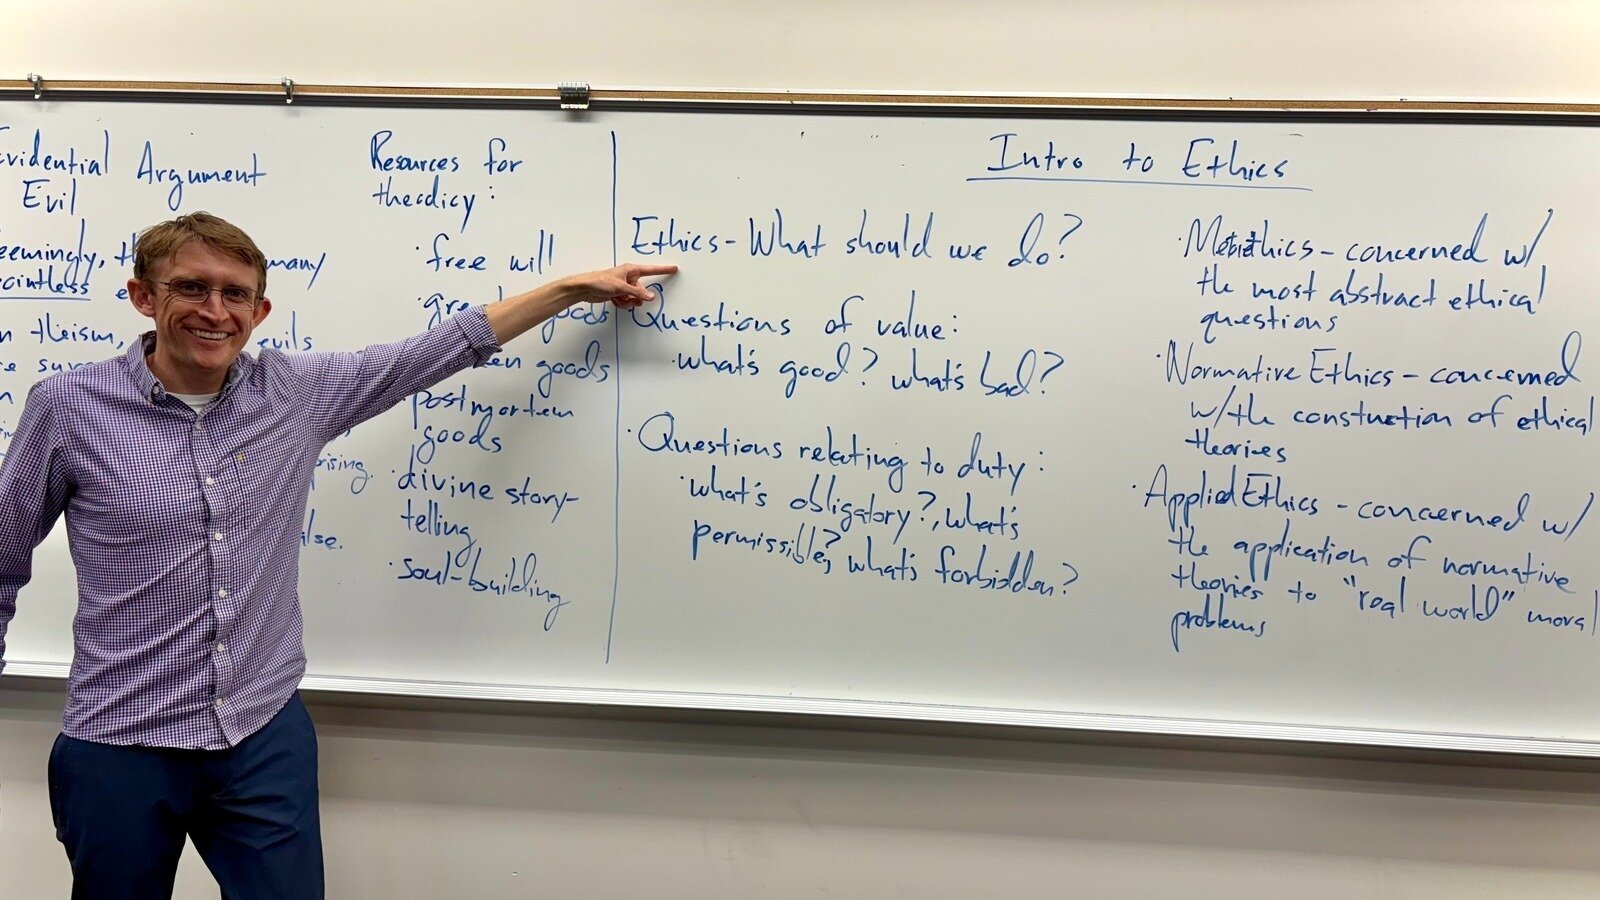 Evidential Argument
Evil
Seemingly, many
pointless
theism, evils
rising.
Resources for
theodicy:
· free will
· goods
goods
· postmortem
goods
· divine story-
telling
· soul-building
Intro to Ethics
Ethics - What should we do?
Questions of value:
· what's good? what's bad?
· Questions relating to duty:
· what's obligatory?, what's
permissible?, what's forbidden?
· Metaethics - concerned w/
the most abstract ethical
questions
· Normative Ethics - concerned
w/the construction of ethical
theories
· Applied Ethics - concerned w/
the application of normative
theories to "real world" moral
problems